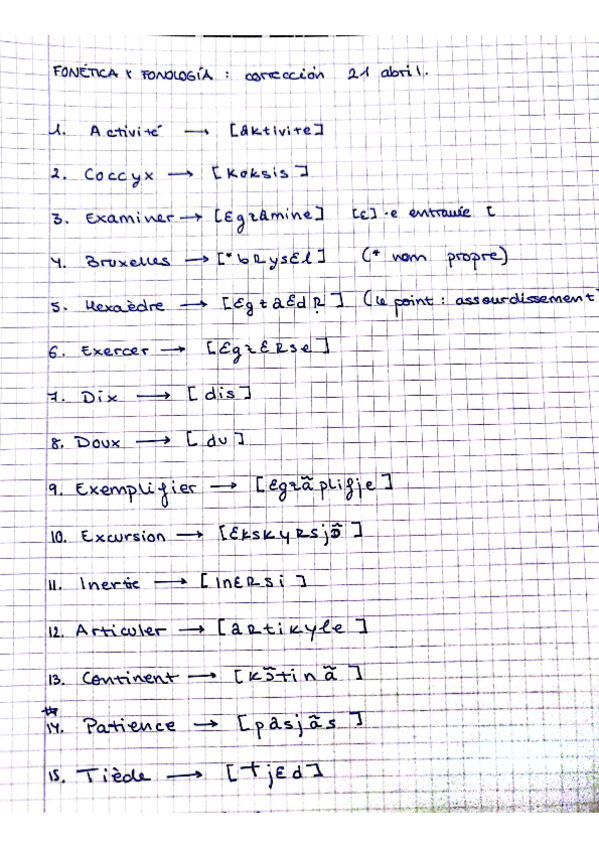 FONÉTICA Y FONOLOGÍA : corrección 21 abril.
1. Activité → [aktivite]
2. Coccyx → [koksis]
3. Examiner → [ɛgzamine] [ɛ] · e entravée [
4. Bruxelles → [*bRysɛl] (* nom propre)
5. Hexaèdre → [ɛgzaɛdR̥] (le point : assourdissement)
6. Exercer → [ɛgzɛRse]
7. Dix → [dis]
8. Doux → [du]
9. Exemplifier → [ɛgzãplifje]
10. Excursion → [ɛkskyRsjɔ̃]
11. Inertie → [inɛRsi]
12. Articuler → [aRtikyle]
13. Continent → [kɔ̃tinã]
14. Patience → [pasjãs]
15. Tiède → [tjɛd]